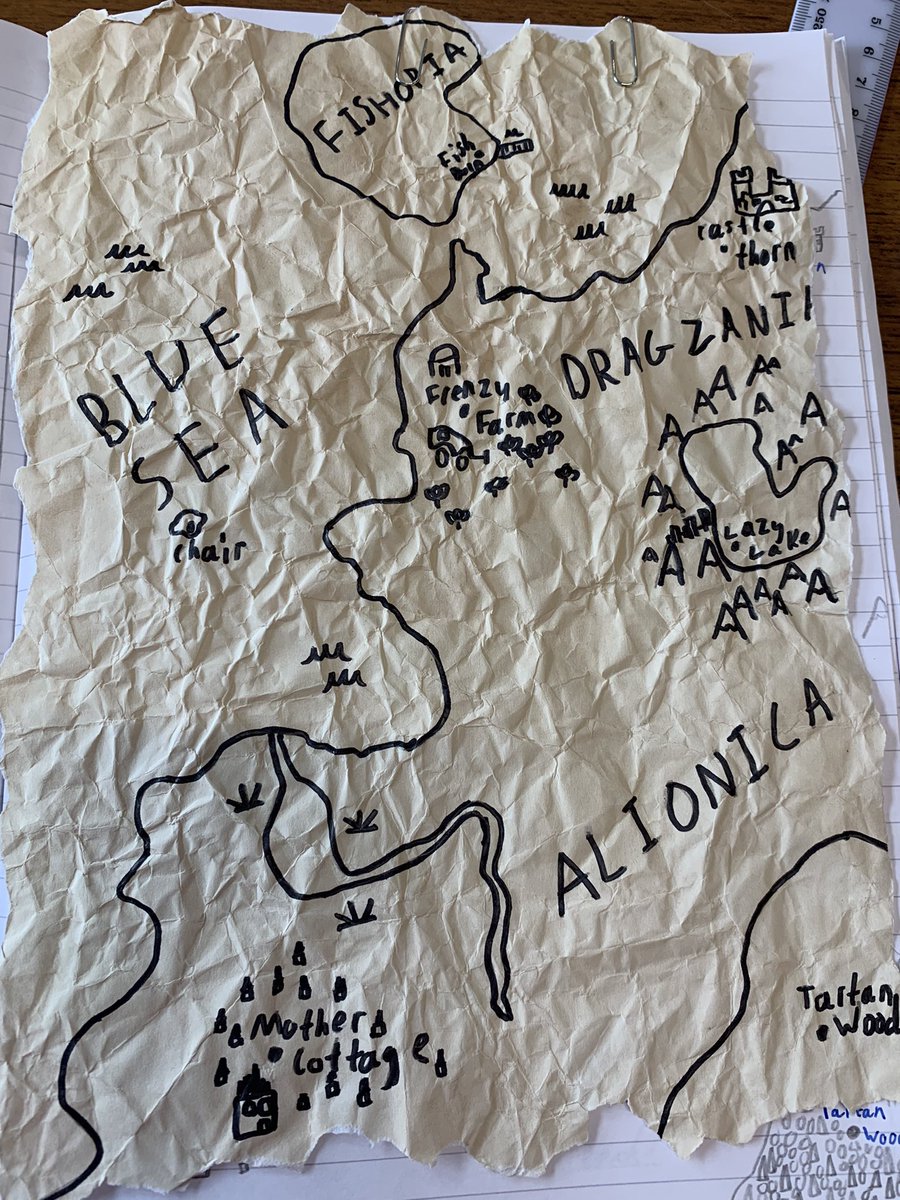 FISHOPIA
Fish
Bowl
castle
thorn
DRAGZANI
BLUE
SEA
Frenzy
Farm
Lazy
Lake
chair
ALIONICA
Mother
Cottage
Tartan
Wood
Tartan
Wood
250
5
6
7